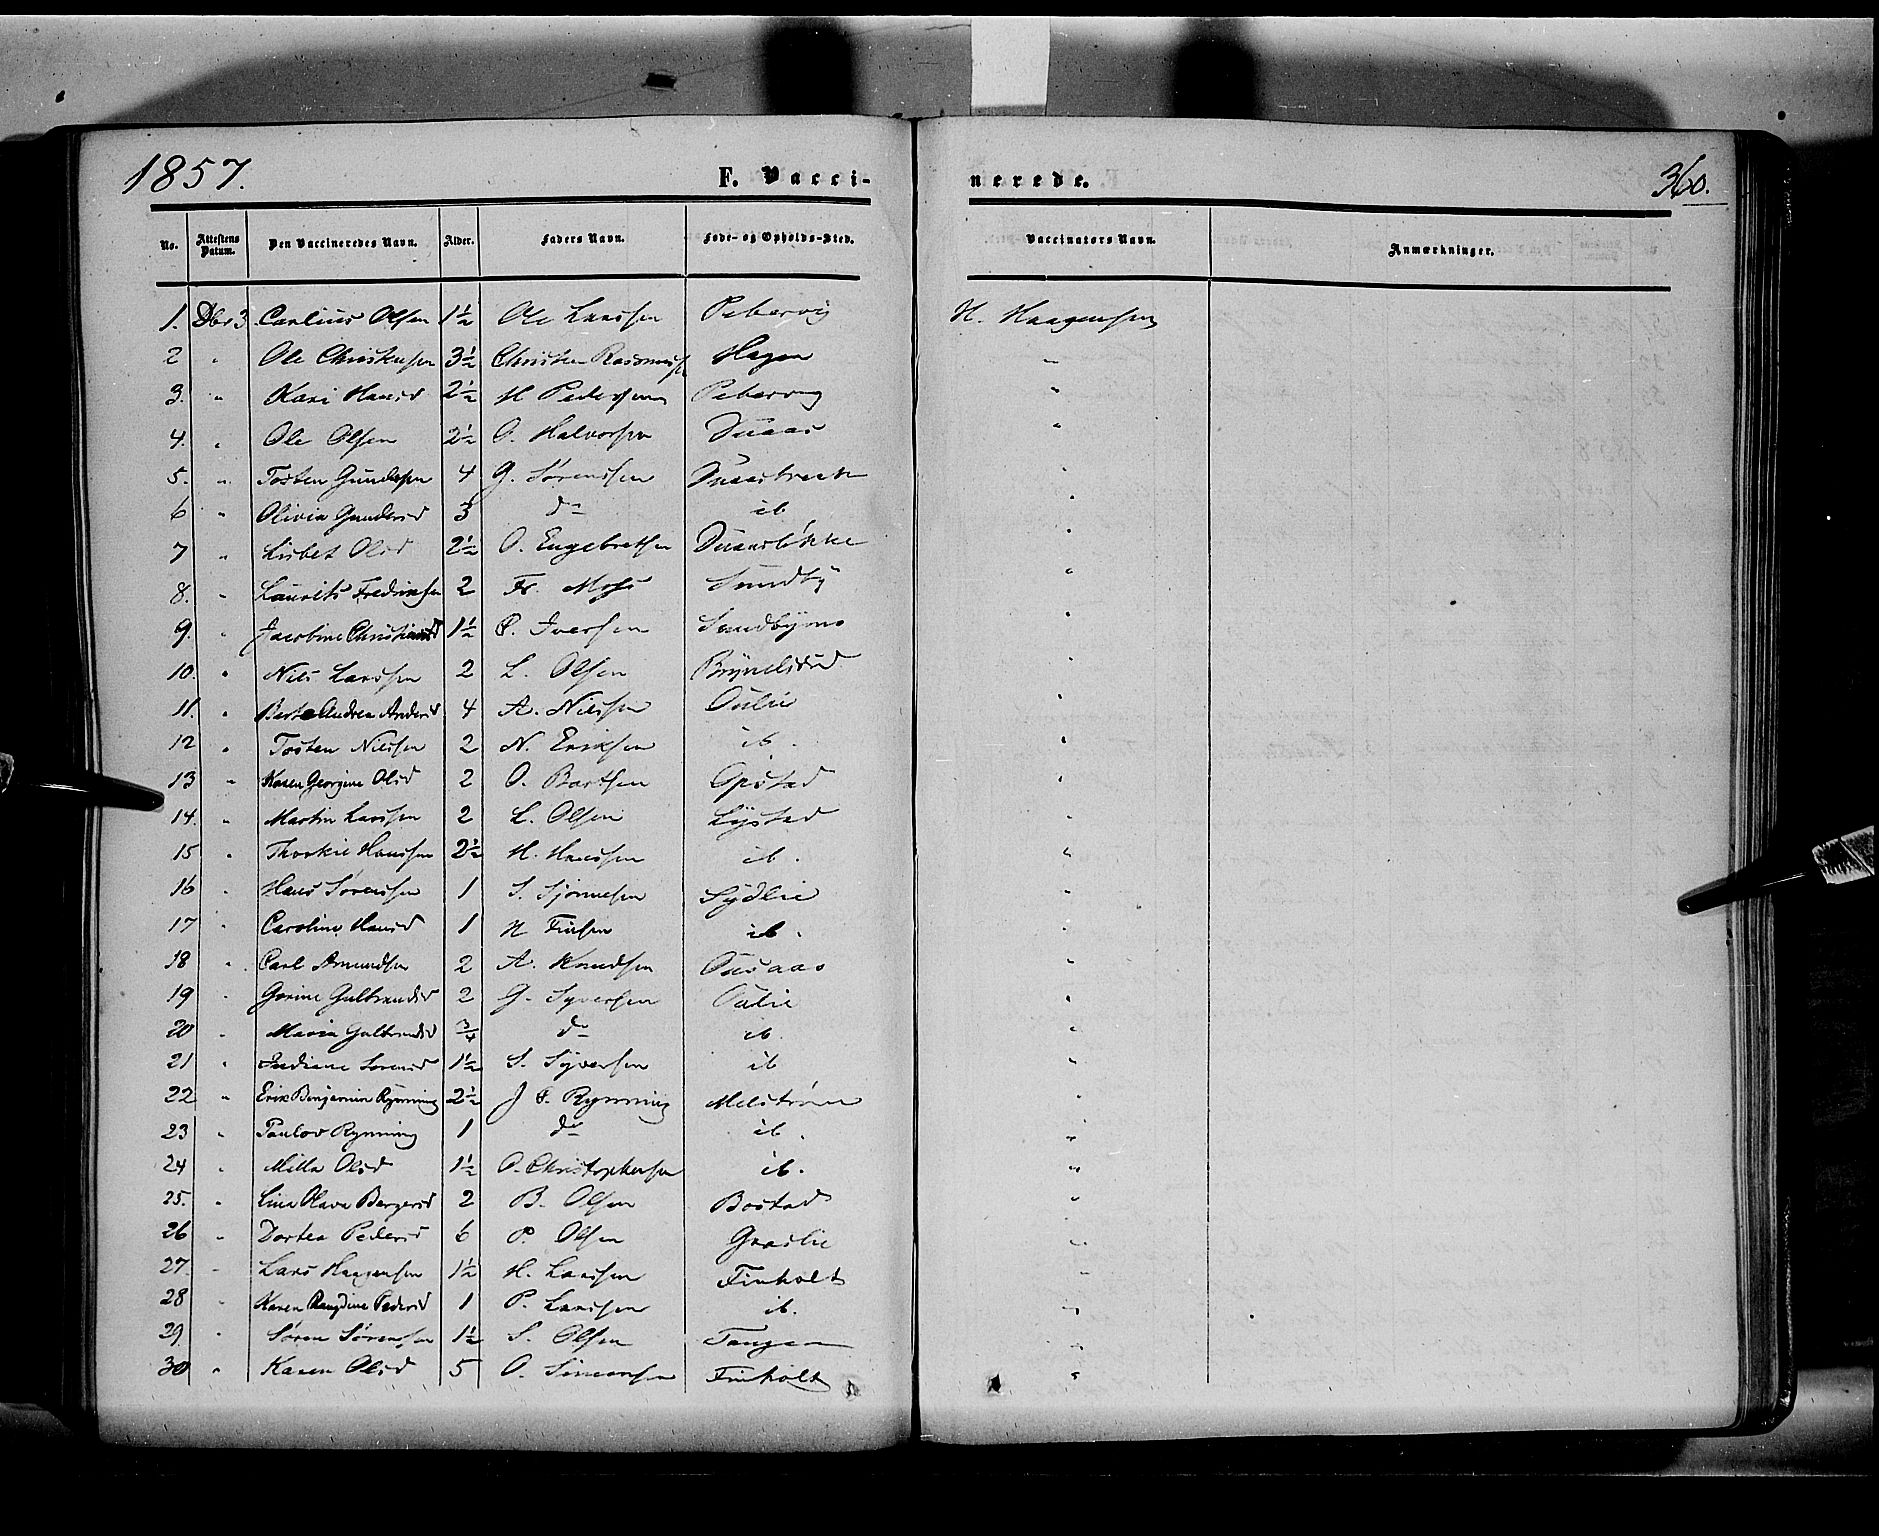 1857.
F. Vacci-
nerede.
360.
No. Attestens Datum. Den Vaccineredes Navn. Alder. Faders Navn. Føde- og Opholds-Sted. Vaccinators Navn. Anmærkninger.
1. Dbr 3 Carlius Olsen 1½ Ole Larssen Pebervig H. Haagensen
2 " Ole Christensen 3½ Christen Rasmuss Hagen "
3. " Kari Hansd 2½ H Pedersen Pebervig "
4. " Ole Olsen 2½ O. Halvorsen "
5. " Tosten Gundersen 4 G. Sørenssen "
6 " Olivia Gundersd 3 do ib "
7 " Lisbet Olsd 2½ O. Engebretsen "
8. " Laurits Fredriksen 2 Fr. Moss Sundby "
9. " Jacobine Christiansd 1½ P. Iversen "
10. " Nils Larssen 2 L. Olsen "
11. " Berte Andrea Andersd 4 A. Nilssen Oulie "
12 " Tosten Nilssen 2 N. Eriksen ib. "
13 " Karen Georgine Olsd 2 O. Bartsen Opstad "
14. " Martin Larssen 2 L. Olsen Lystad "
15 " Thorkil Hanssen 2½ H. Hanssen ib. "
16 " Hans Sørenssen 1 S. Sydlie "
17 " Caroline Hansd 1 H Finsen ib. "
18 " Carl Amundsen 2 A. Knudsen "
19 " Gorine Gulbrandsd 2 G. Syversen Oulie "
20 " Maria Gulbrandsd ¾ do ib. "
21 " Indiane Sorensd 1½ S. Syversen ib "
22 " Erik Benjamin Rynning 2½ J F. Rynning Melstrøm "
23 " Rynning 1 do ib. "
24 " Milla Olsd 1½ O. Christophersen ib. "
25. " Lina Olava Bergersd 2 B. Olsen Bostad "
26 " Dortea Pedersd 6 P. Olsen Graslie "
27. " Lars Haagensen 1½ H. Larssen Finholt "
28 " Karen Ragdine Pedersd 1 P. Larssen ib. "
29 " Søren Sørenssen 1½ S. Olsen Tangen "
30 " Karen Olsd 5 O. Simensen Finholt "